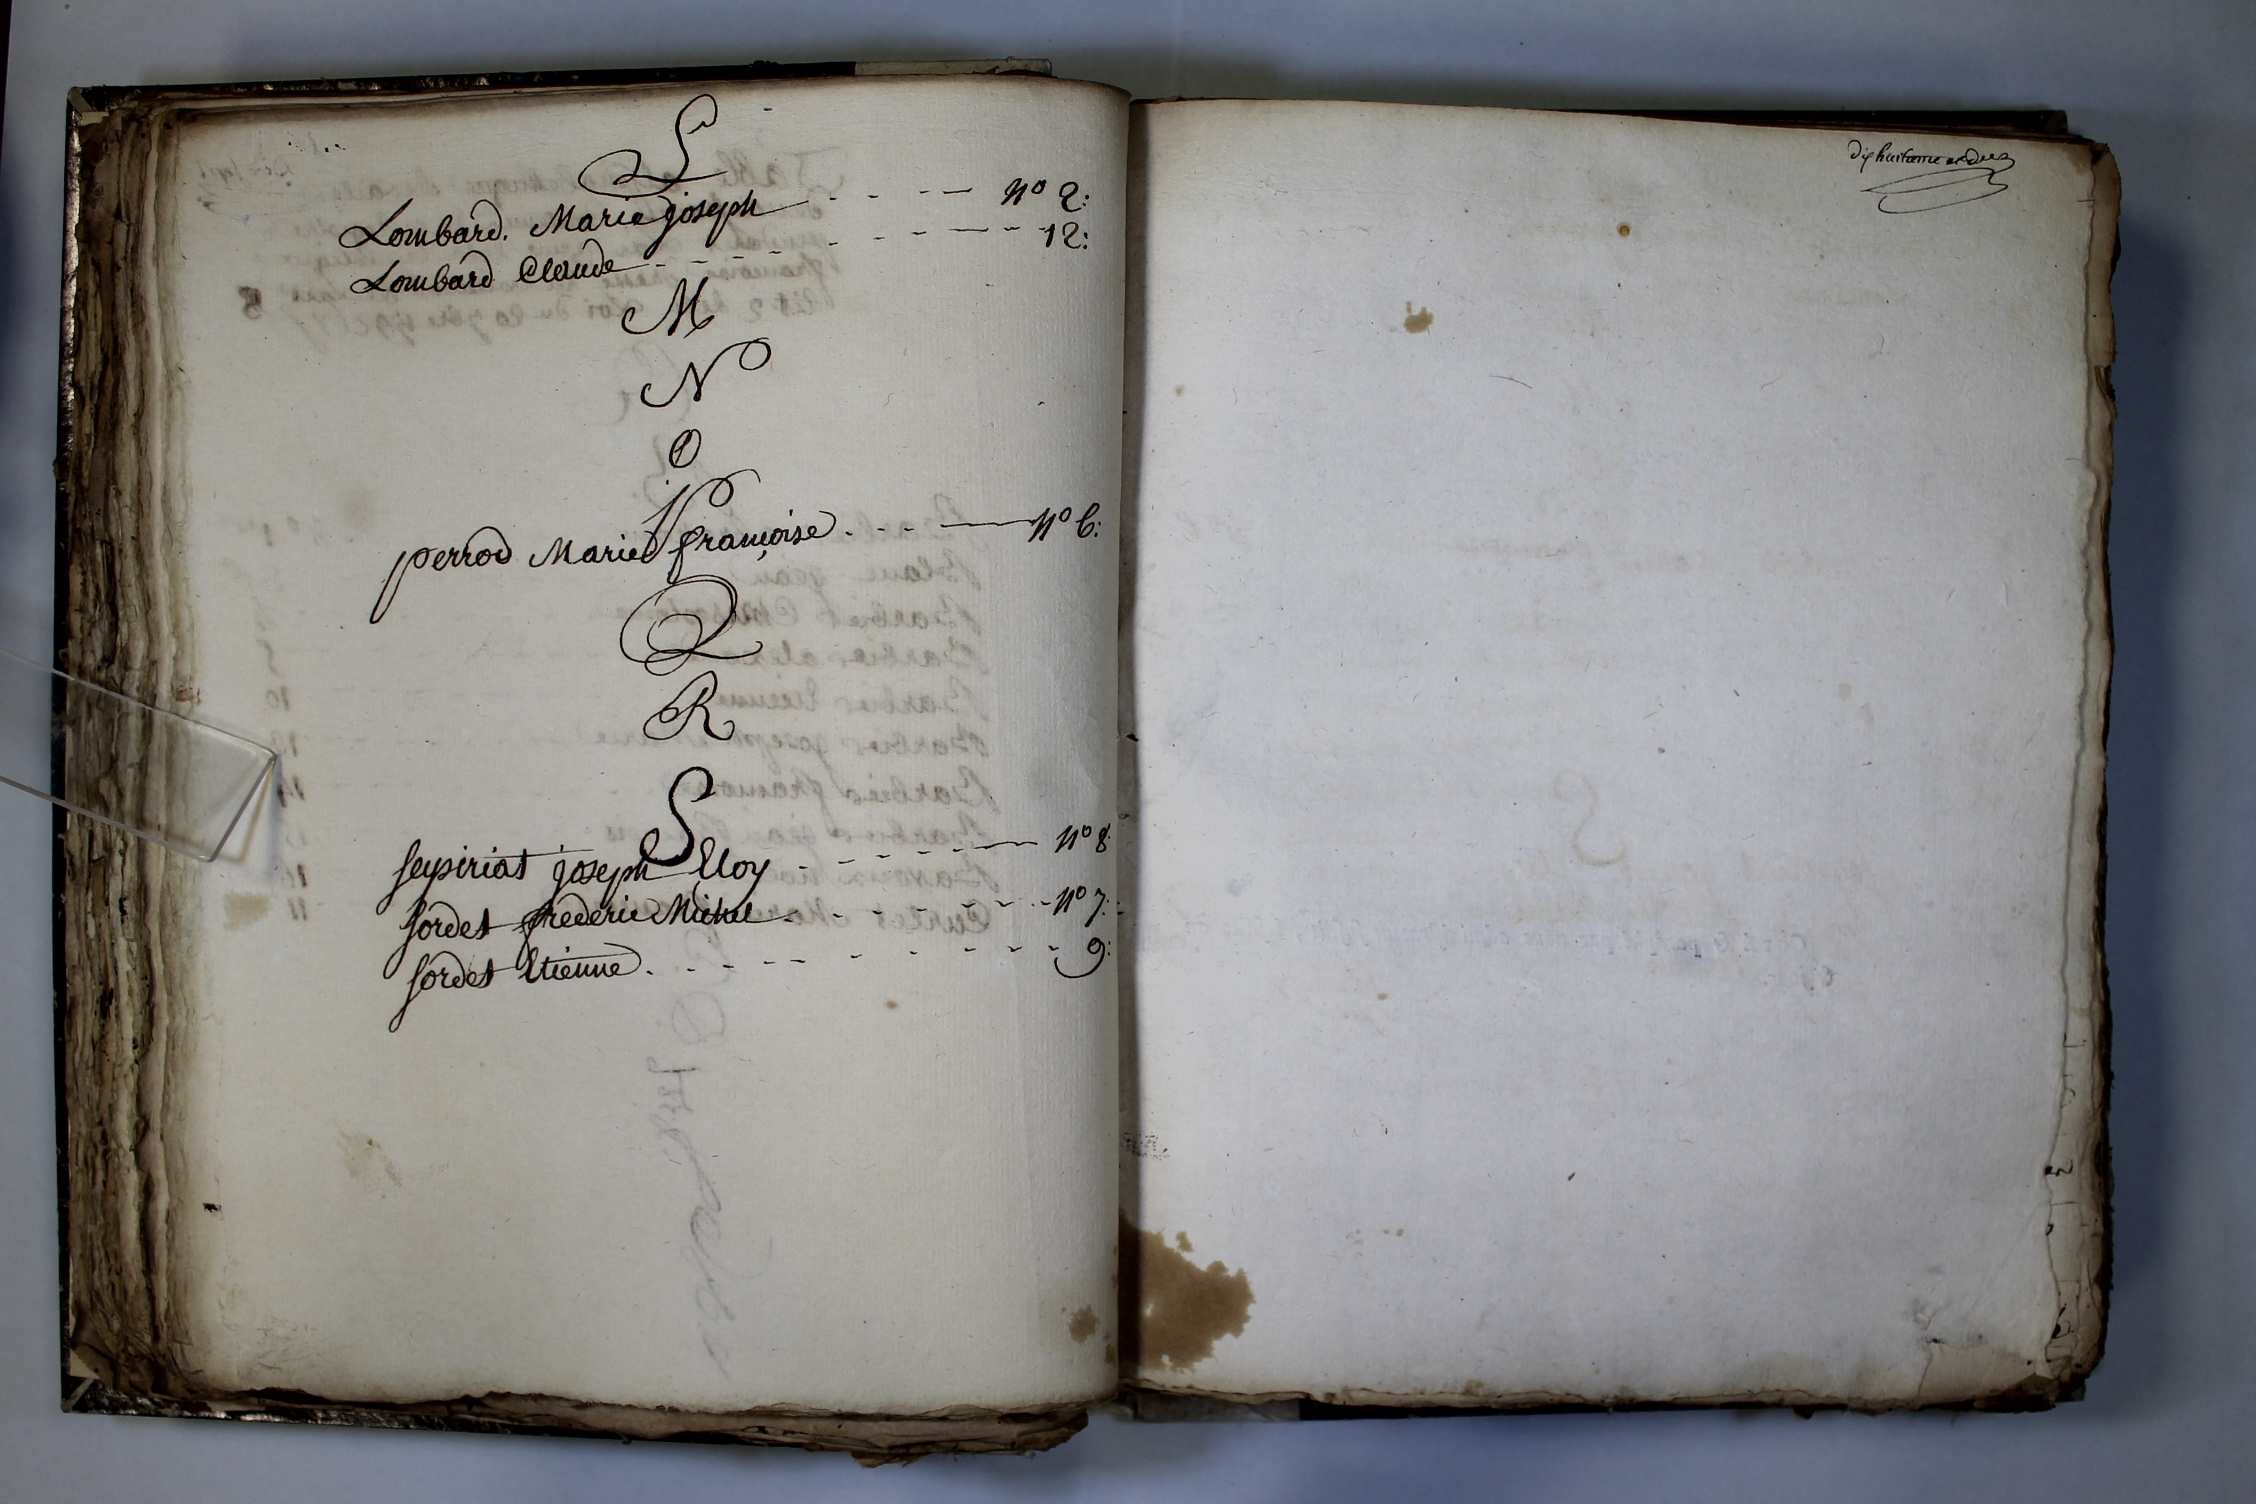 L
Lombard. Marie joseph - - - - nº 2:
Lombard Claude - - - - - - - 12:
M
N
O
P
perrod Marie françoise - - - nº 6:
Q
R
S
seysiriat joseph Eloy - - - - - nº 8
sordet frederic Michel - - - - - nº 7:
sordet Etienne - - - - - - - 9:
dix huitieme et